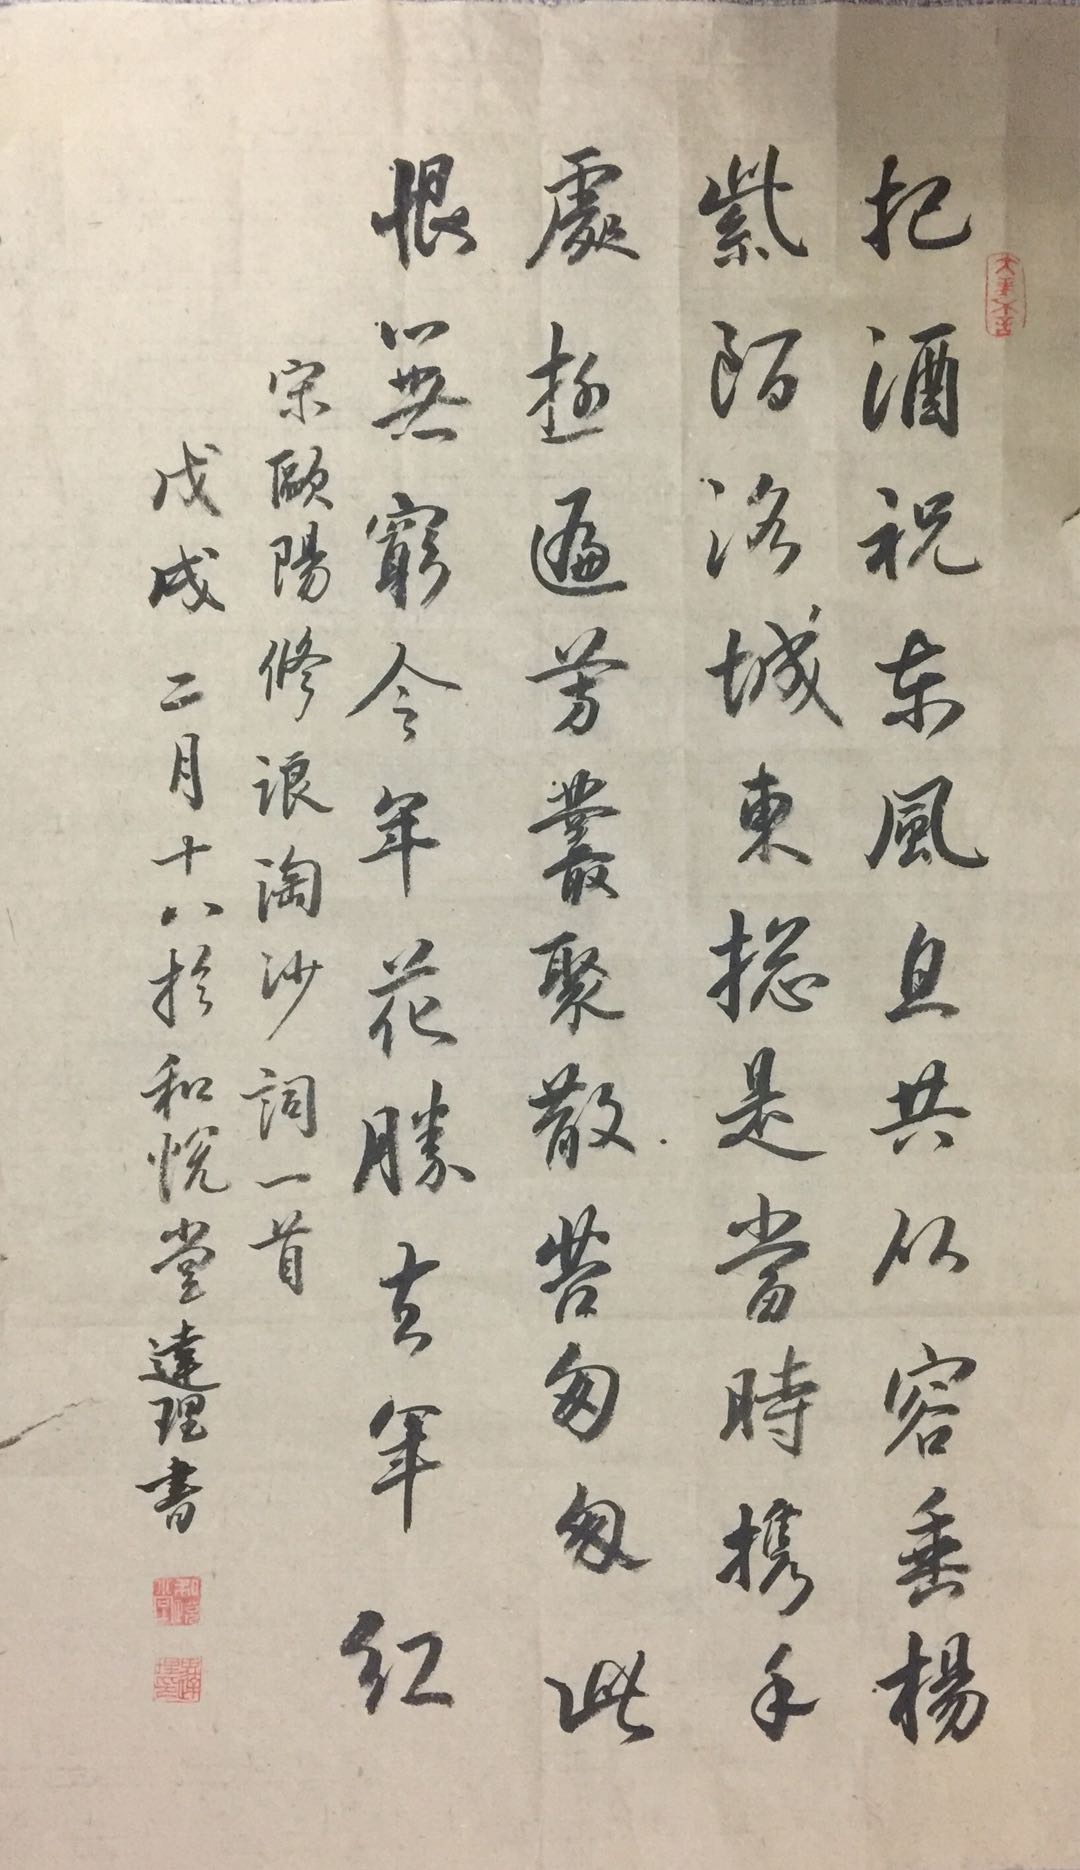 大美不言
把酒祝东風且共从容垂楊
紫陌洛城東揔是當時携手
處遊遍芳叢聚散苦匆匆此
恨無窮今年花勝去年红
宋歐陽修浪淘沙詞一首
戊戌二月十八於和悦堂達理書
和悦堂